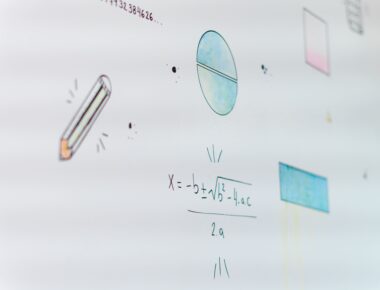 32384626...
X = -b ± √b² - 4.ac
2.a